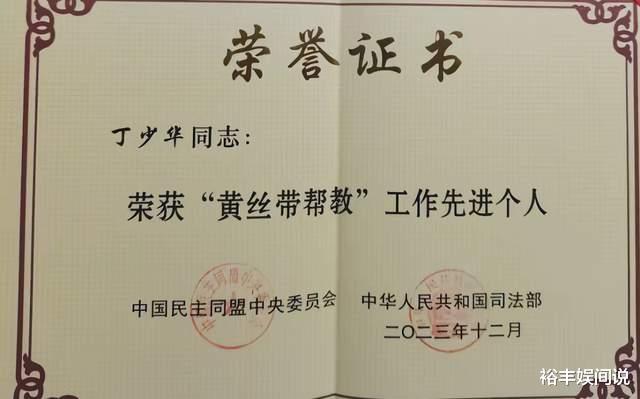 荣誉证书
丁少华同志：
荣获“黄丝带帮教”工作先进个人
中国民主同盟中央委员会 中华人民共和国司法部
二〇二三年十二月
裕丰娱间说